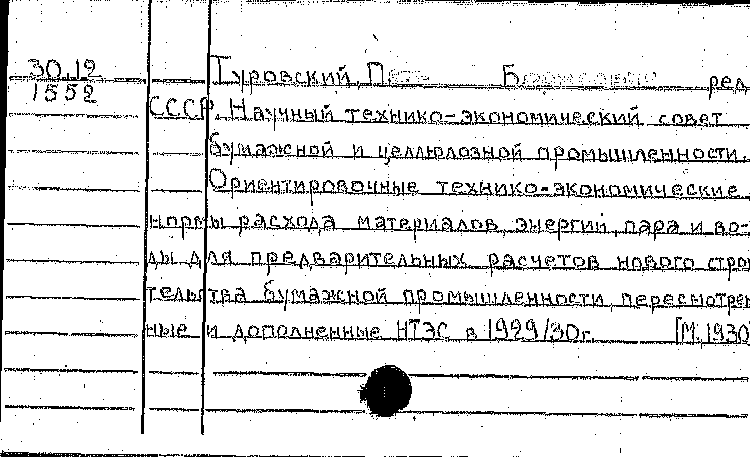 30.12
1552
Гуровский, ред
СССР. Научный технико-экономический совет
бумажной и целлюлозной промышленности.
Ориентировочные технико-экономические
нормы расхода материалов, энергии, пара и во-
ды для предварительных расчетов нового строи
тельства бумажной промышленности, пересмотрен
ные и дополненные НТЭС в 1929/30г. [М., 1930